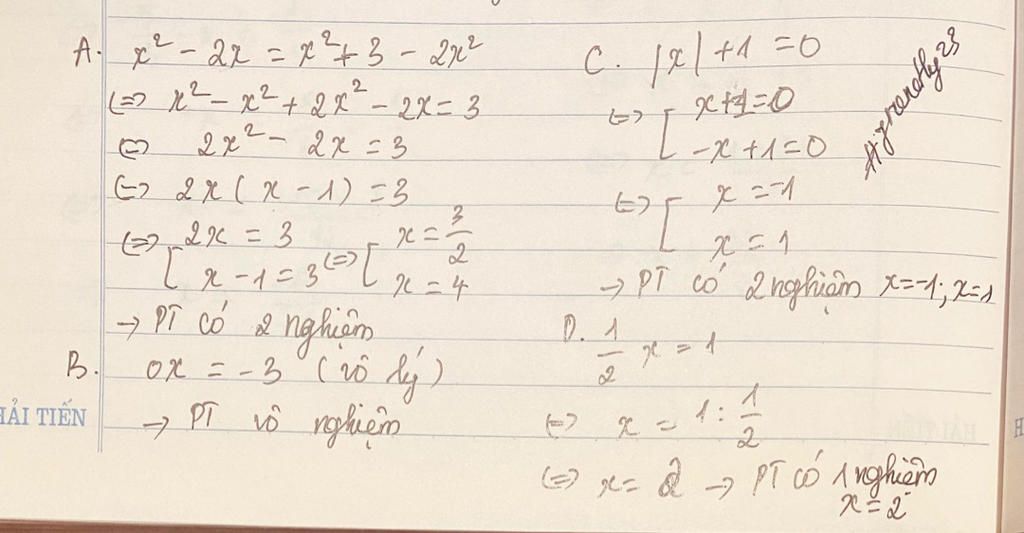 A. x² - 2x = x² + 3 - 2x²
(=) x² - x² + 2x² - 2x = 3
(=) 2x² - 2x = 3
(=) 2x ( x - 1 ) = 3
(=) [ 2x = 3 (=) [ x = 3/2
x - 1 = 3 x = 4
→ PT có 2 nghiệm
B. 0x = -3 (vô lý)
→ PT vô nghiệm
C. |x| + 1 = 0
(=) [ x + 1 = 0
-x + 1 = 0
(=) [ x = -1
x = 1
→ PT có 2 nghiệm x = -1; x = 1
D. 1/2 x = 1
(=) x = 1 : 1/2
(=) x = 2 → PT có 1 nghiệm
x = 2
HẢI TIẾN